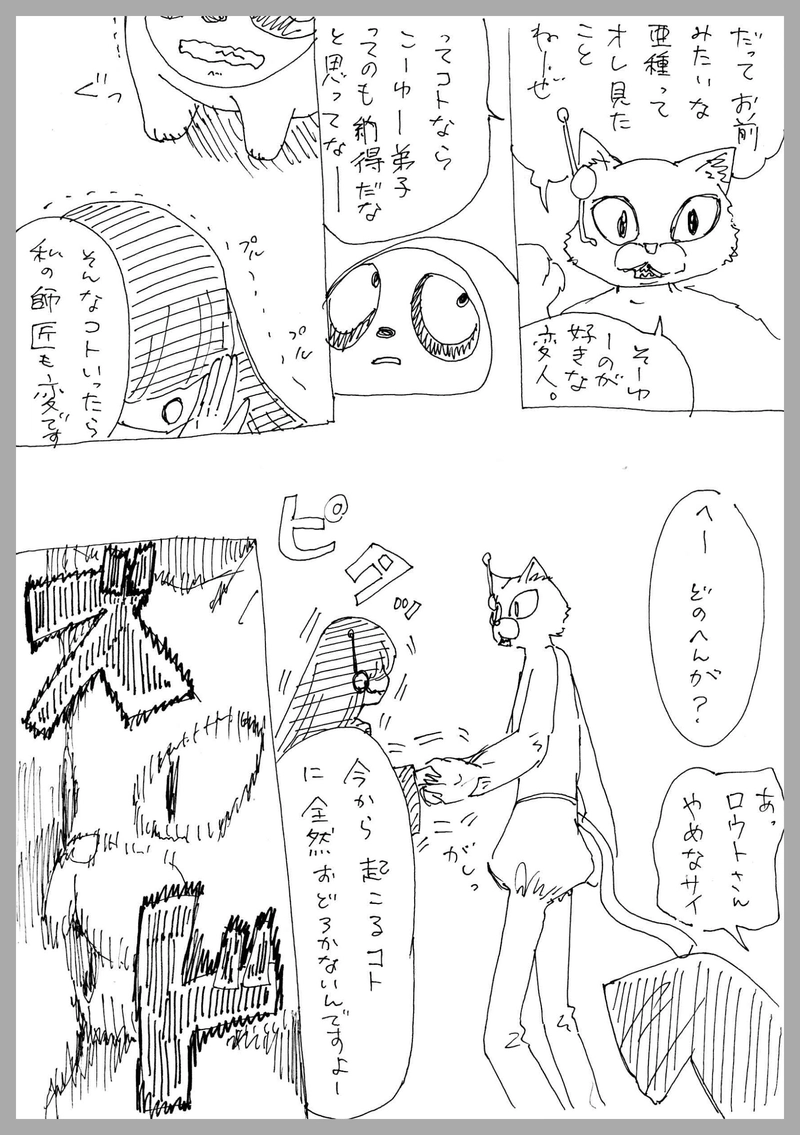 だってお前
みたいな
亜種って
オレ見た
こと
ねーぜ
そーゆ
ーのが
好きな
変人。
ってコトなら
こーゆー弟子
ってのも納得だな
と思ってな――
ぐっ
プルー
プルー
そんなコトいったら
私の師匠も変です
へー どのへんが？
あっ
ロウトさん
やめなサイ
ピタッ
がしっ
今から 起こるコト
に 全然おどろかないんですよー